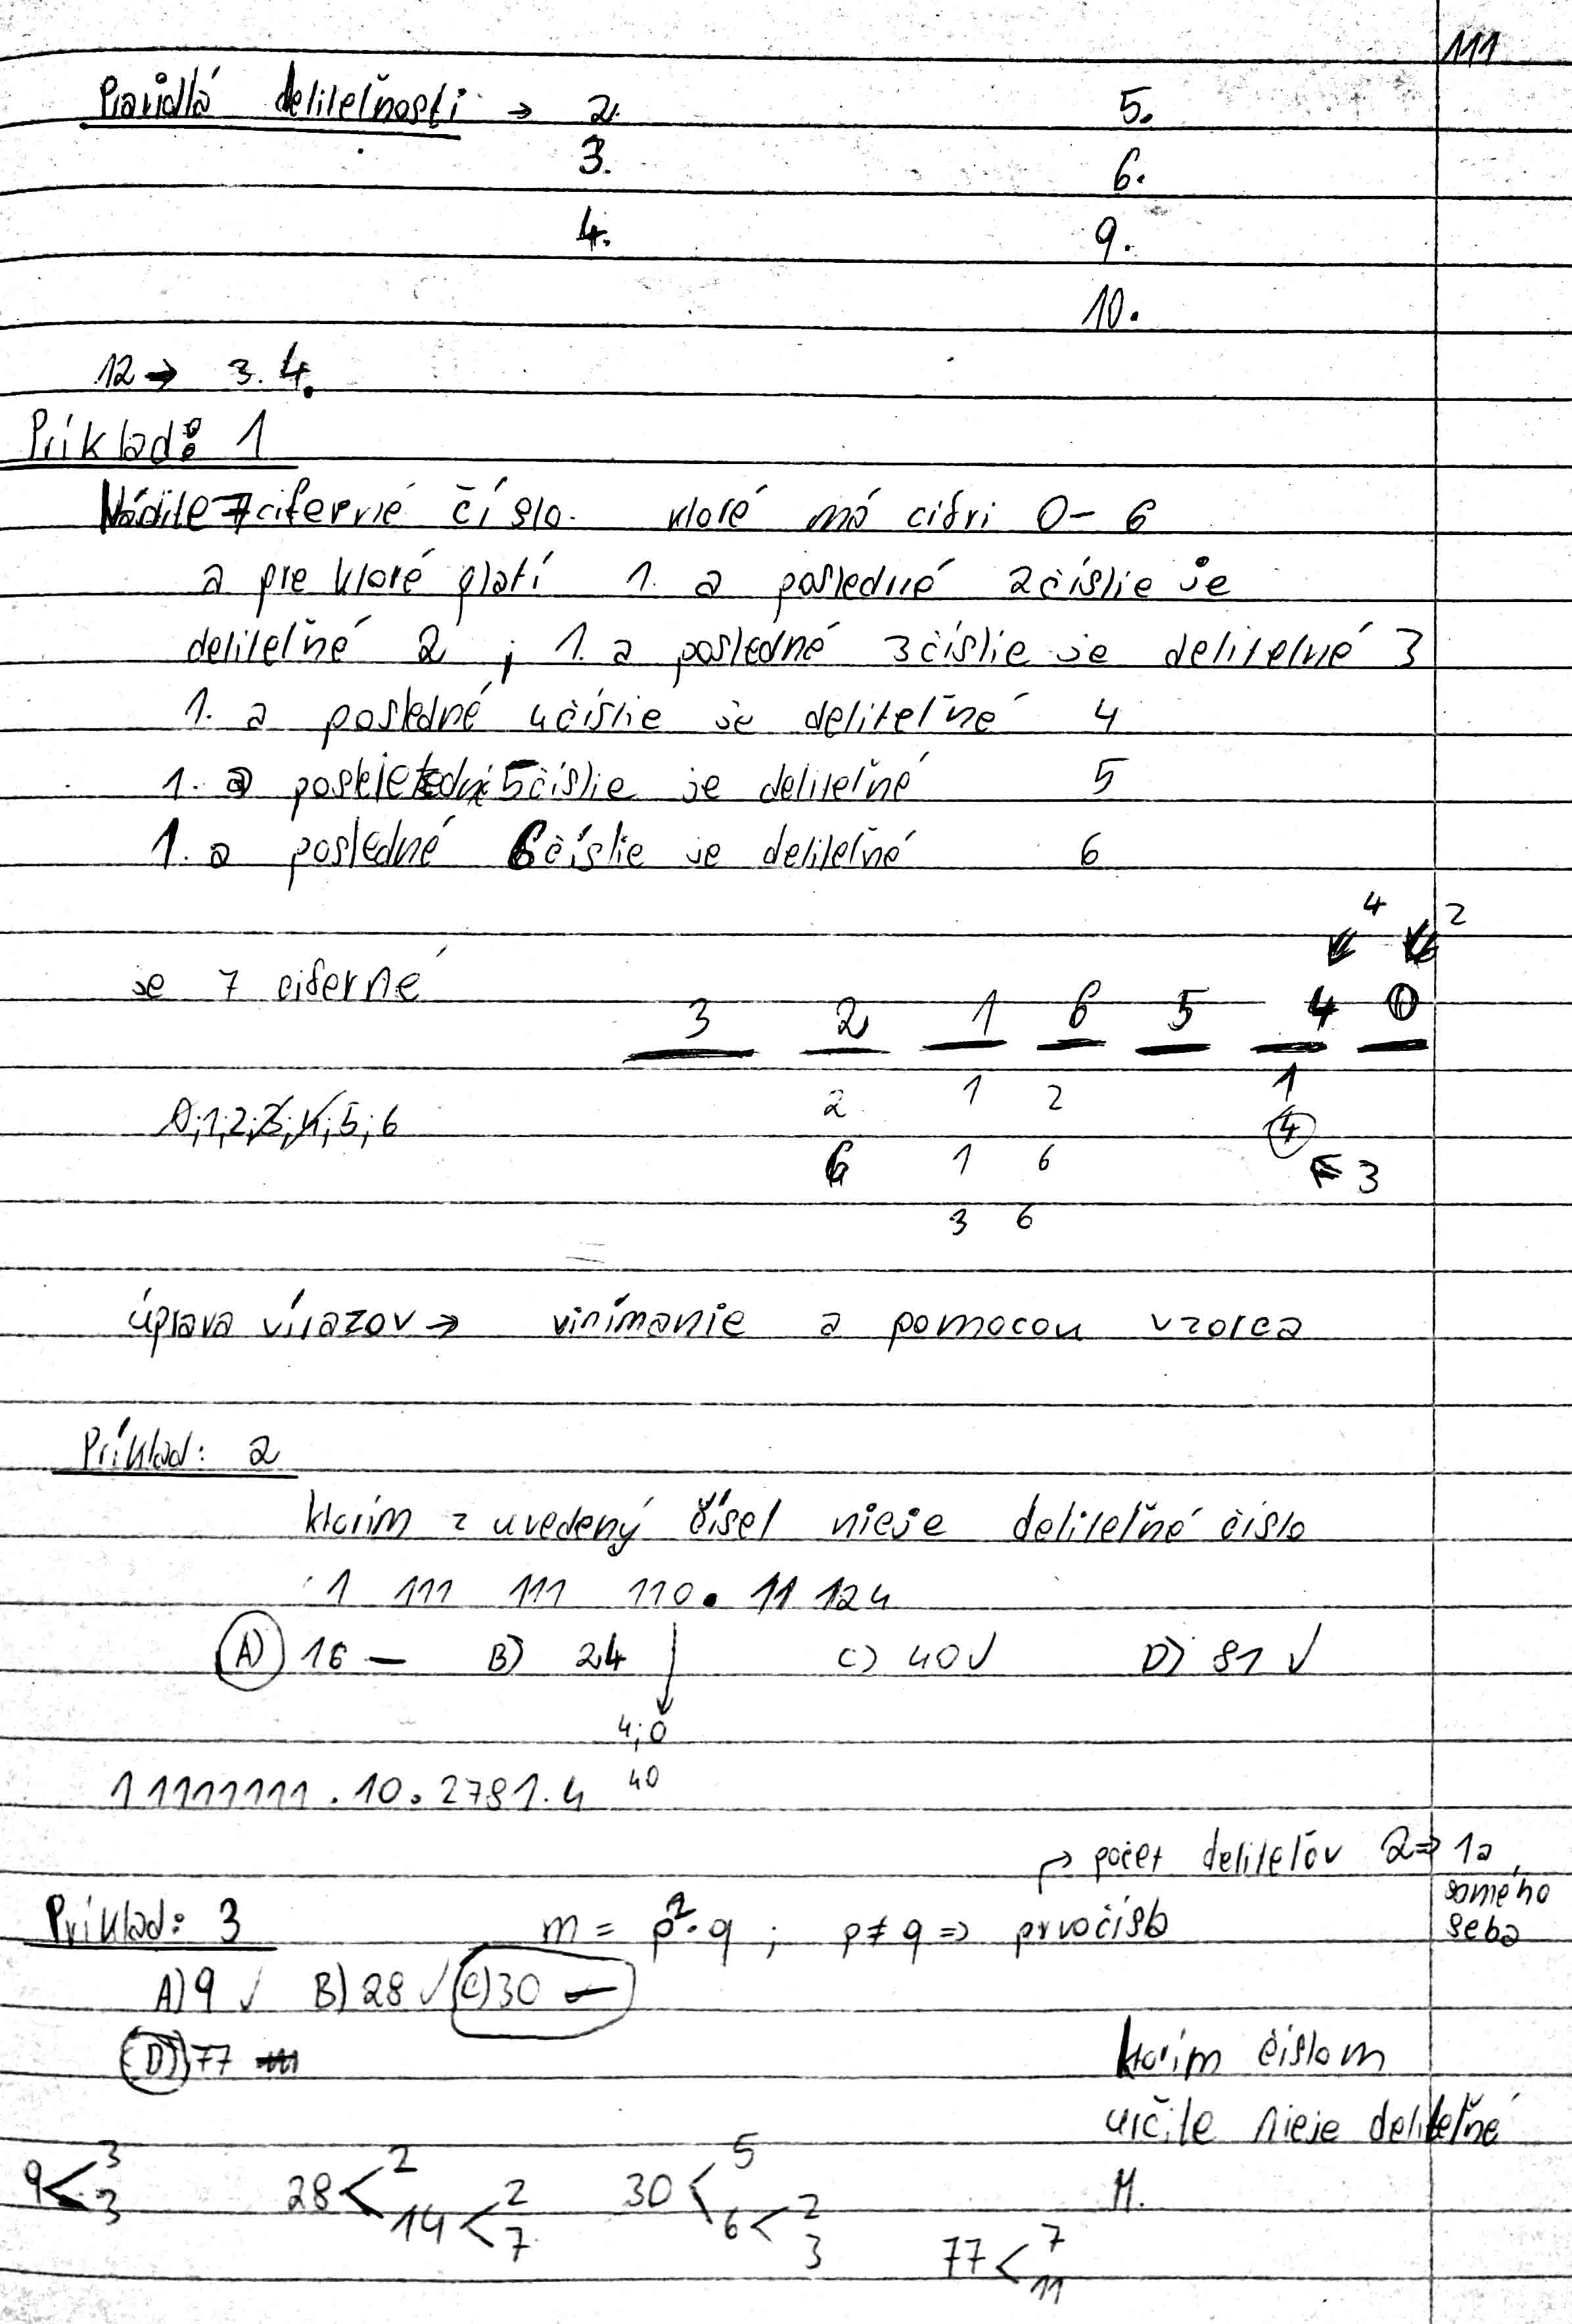 111
Pravidlá deliteľnosti → 2. 5.
3. 6.
4. 9.
10.
12 → 3. 4.
Príklad: 1
7 ciferné číslo. ktoré má cifri 0-6
a pre ktoré platí 1. a posledné 2čislie je
deliteľné 2 ; 1. a posledné 3číslie je delitelné 3
1. a posledné 4číslie je deliteľné 4
1. a 5číslie je deliteľné 5
1. a posledné 6číslie je deliteľné 6
4 2
je 7 ciferné 3 2 1 6 5 4 0
2 1 2 1
0;1;2;3;4;5;6 4
6 1 6 ← 3
3 6
úprava vírazov → vinímanie a pomocou vzorca
Príklad: 2
ktorím z uvedený čísel nieje deliteľné číslo
1 111 111 110 . 11 124
A) 16 – B) 24 C) 40 ✓ D) 81 ✓
4;0
40
11111111 . 10 . 2781 . 4
→ počet deliteľov 2 ⇒ 1 a
samého
seba
Príklad: 3 m = p² . q ; p ≠ q ⇒ prvočísla
A) 9 ✓ B) 28 ✓ C) 30 –
D) 77
ktorím číslom
určite nieje deliteľné
M.
9 < 3 3 28 < 2 14 < 2 7 30 < 5 6 < 2 3
77 < 7 11